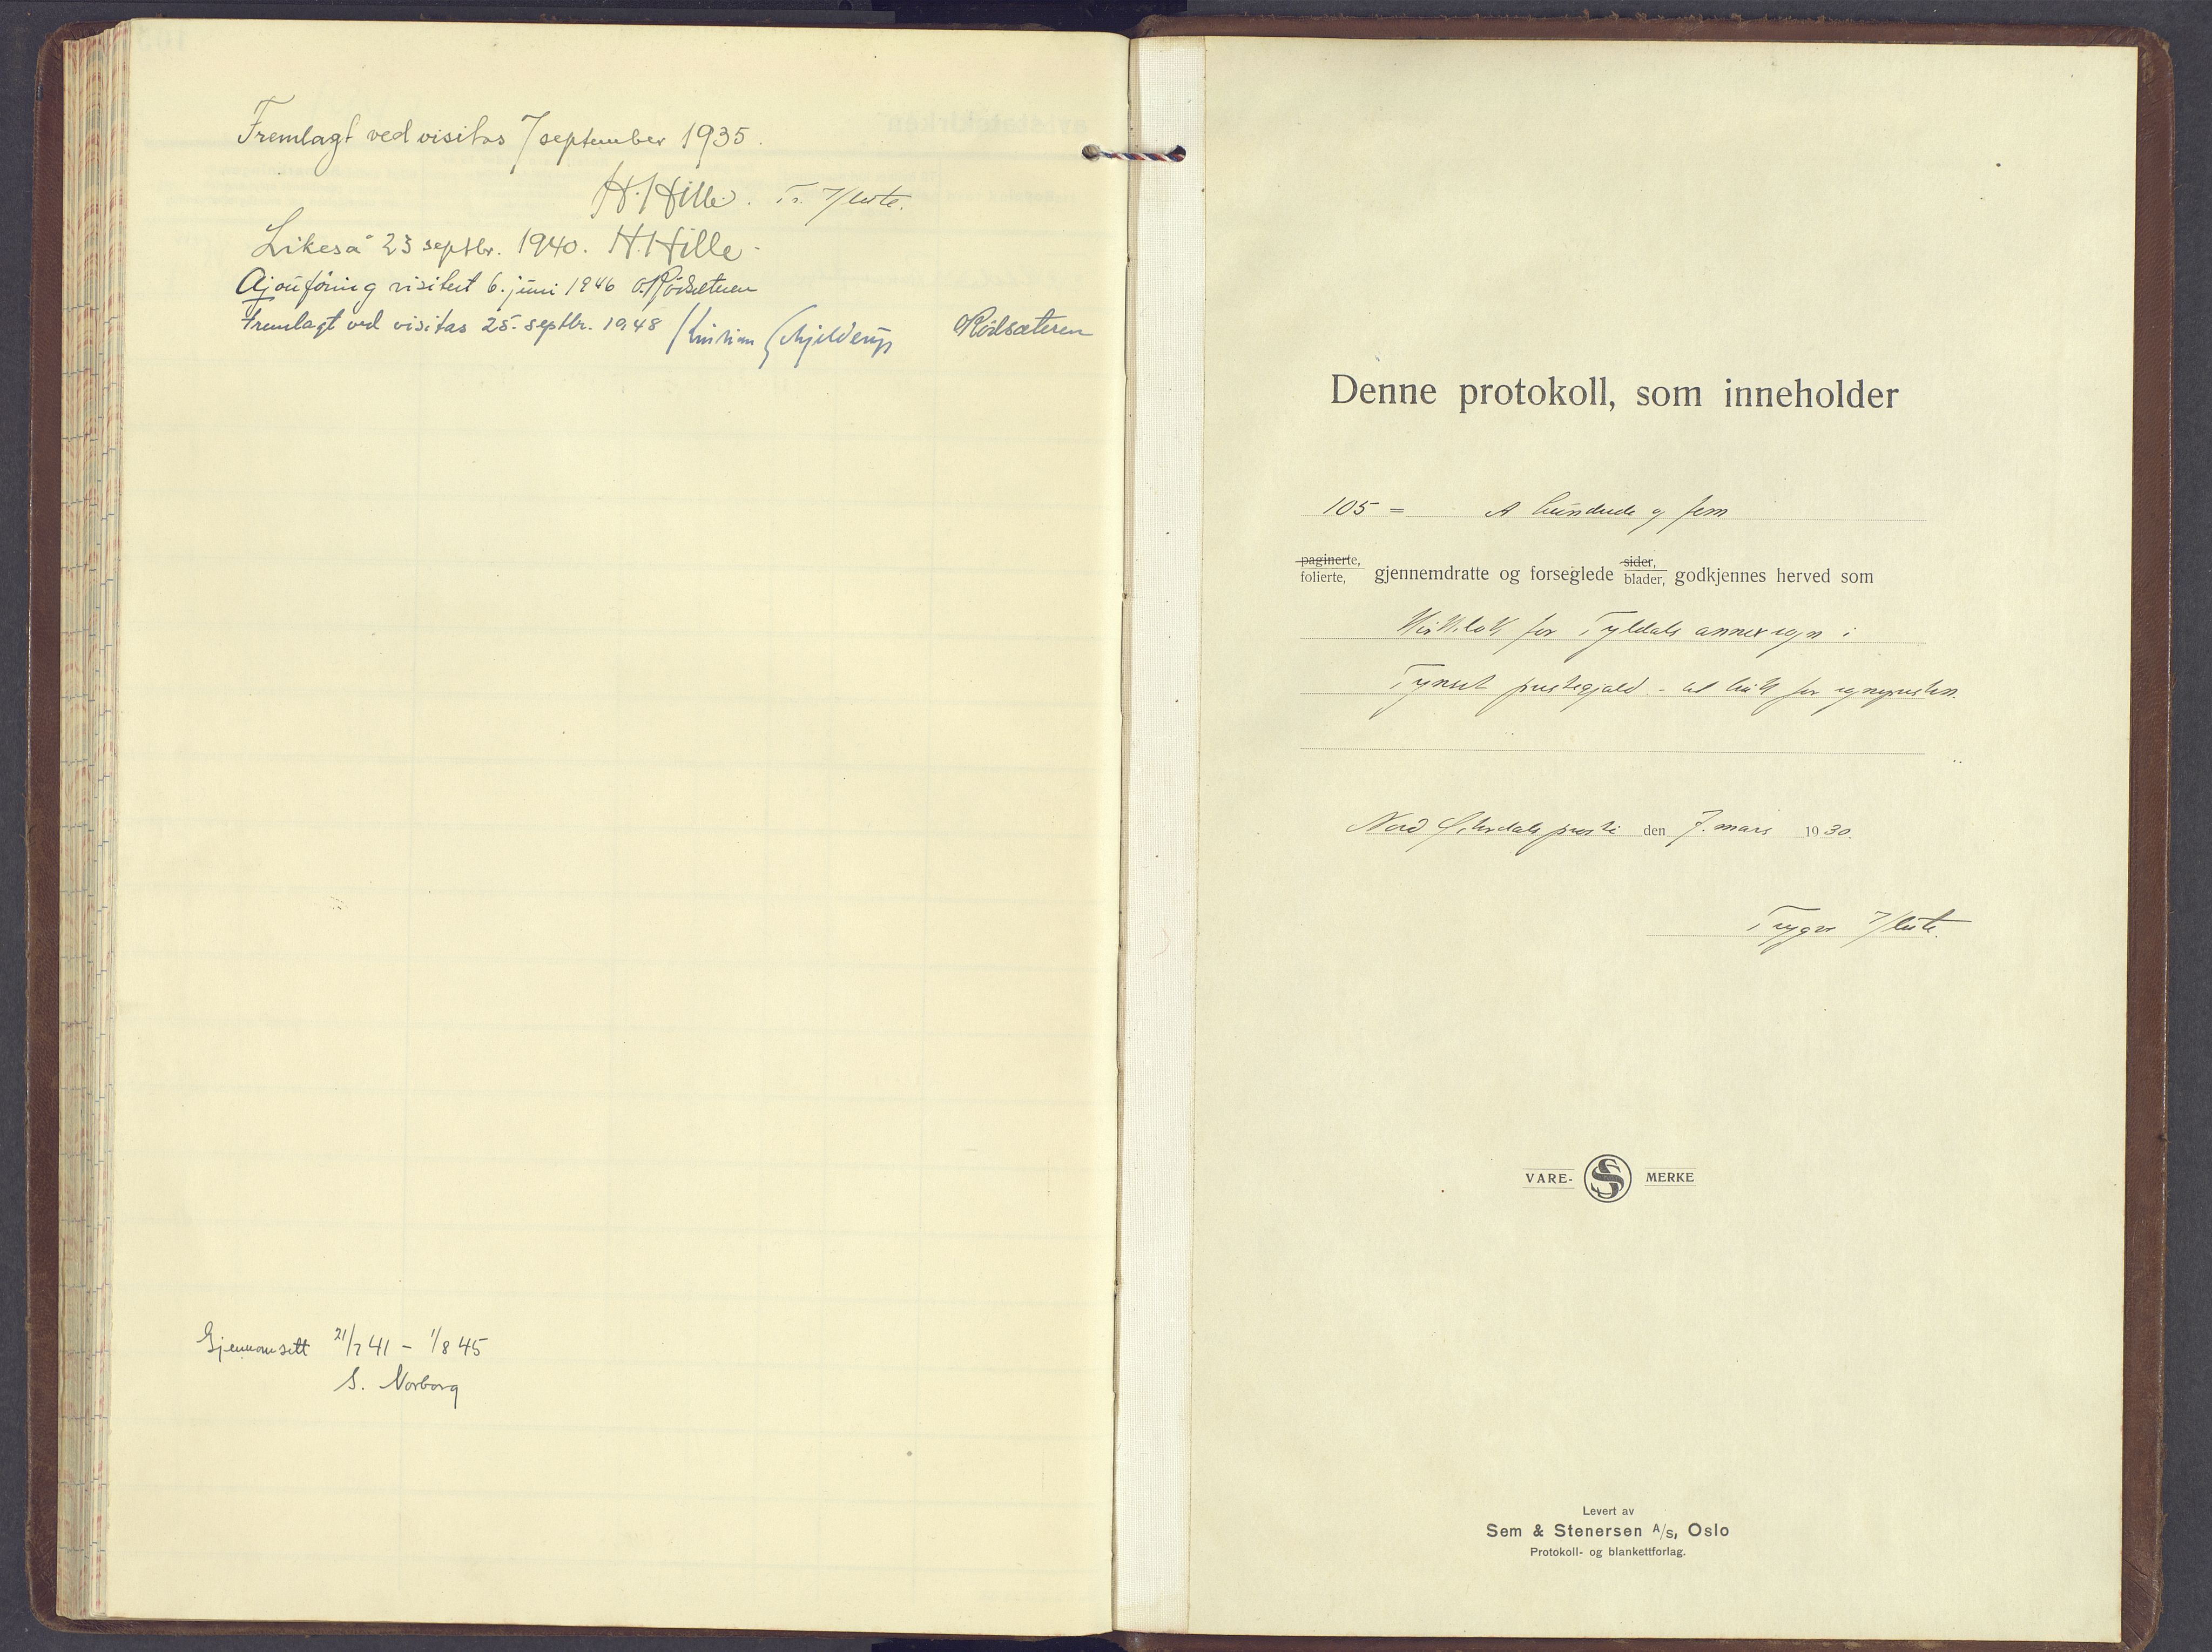 Fremlagt ved visitas 7 september 1935.
H. Hille. Tr.
Likeså 23 septbr. 1940. H. Hille.
Ajouføring visitert 6. juni 1946 O. Rødsæteren
Fremlagt ved visitas 25. septbr. 1948 Kristian Schjelderup O Rödsæteren
Gjennomsett 21/7 41 – 1/8 45
S. Norborg
Denne protokoll, som inneholder
105 = et hundrede og fem
paginerte, folierte, gjennemdratte og forseglede sider, blader, godkjennes herved som
Kirkebok for Tyldals annex sogn i
Tynset prestegjeld - til bruk for sognepresten.
Nord Østerdals prosti den 7. mars 1930.
Trygve
VARE- S MERKE
Levert av
Sem & Stenersen A/S, Oslo
Protokoll- og blankettforlag.